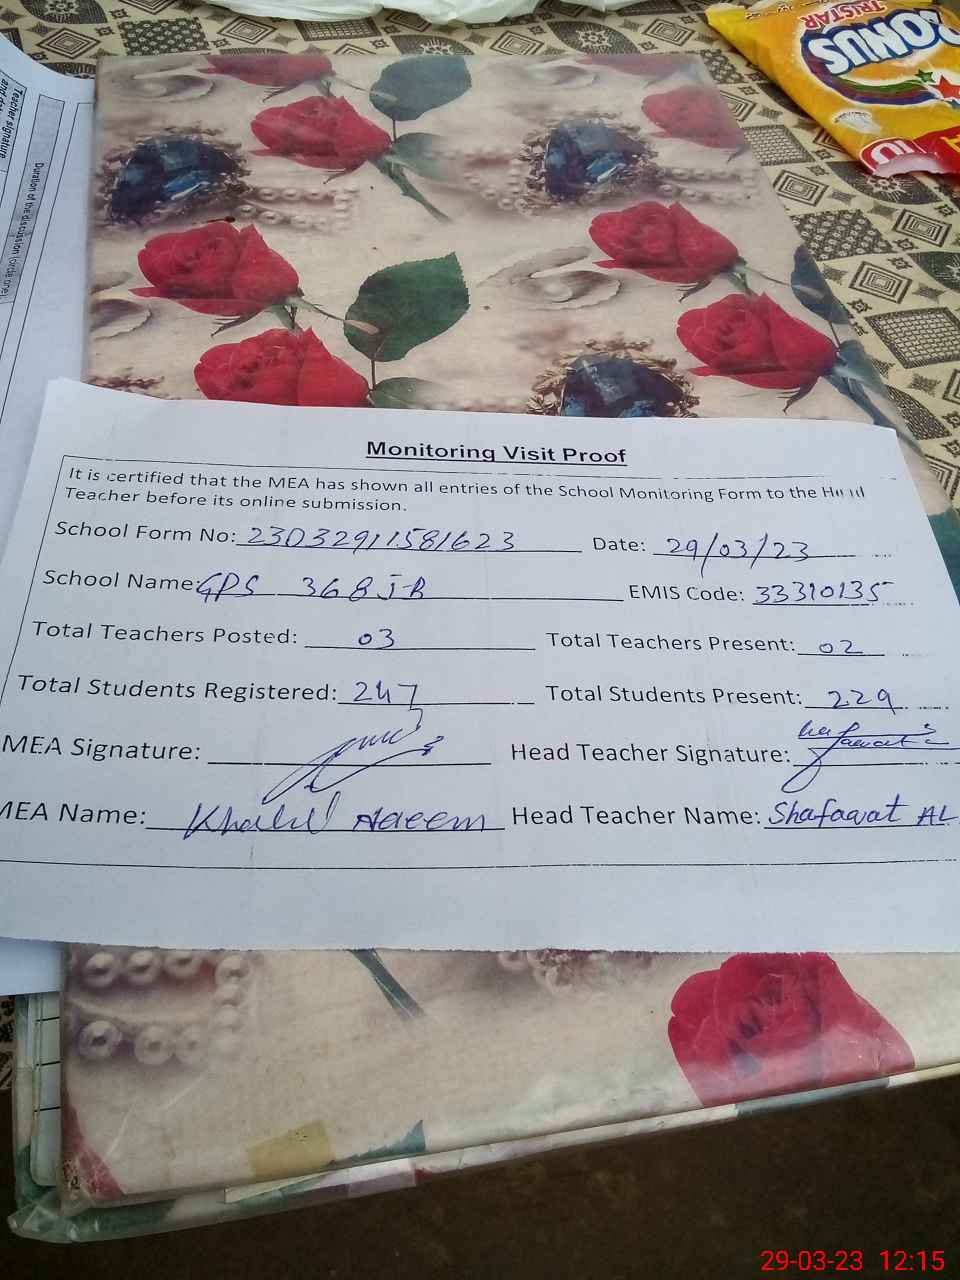 BONUS
TRISTAR
Teacher signature
Duration of the discussion (circle one)
Monitoring Visit Proof
It is certified that the MEA has shown all entries of the School Monitoring Form to the Head
Teacher before its online submission.
School Form No: 23032911581623 Date: 29/03/23
School Name: GPS 368 J-B EMIS Code: 33310135
Total Teachers Posted: 03 Total Teachers Present: 02
Total Students Registered: 247 Total Students Present: 229
MEA Signature: Head Teacher Signature:
MEA Name: Khalil Naeem Head Teacher Name: Shafaqat AL
29-03-23 12:15